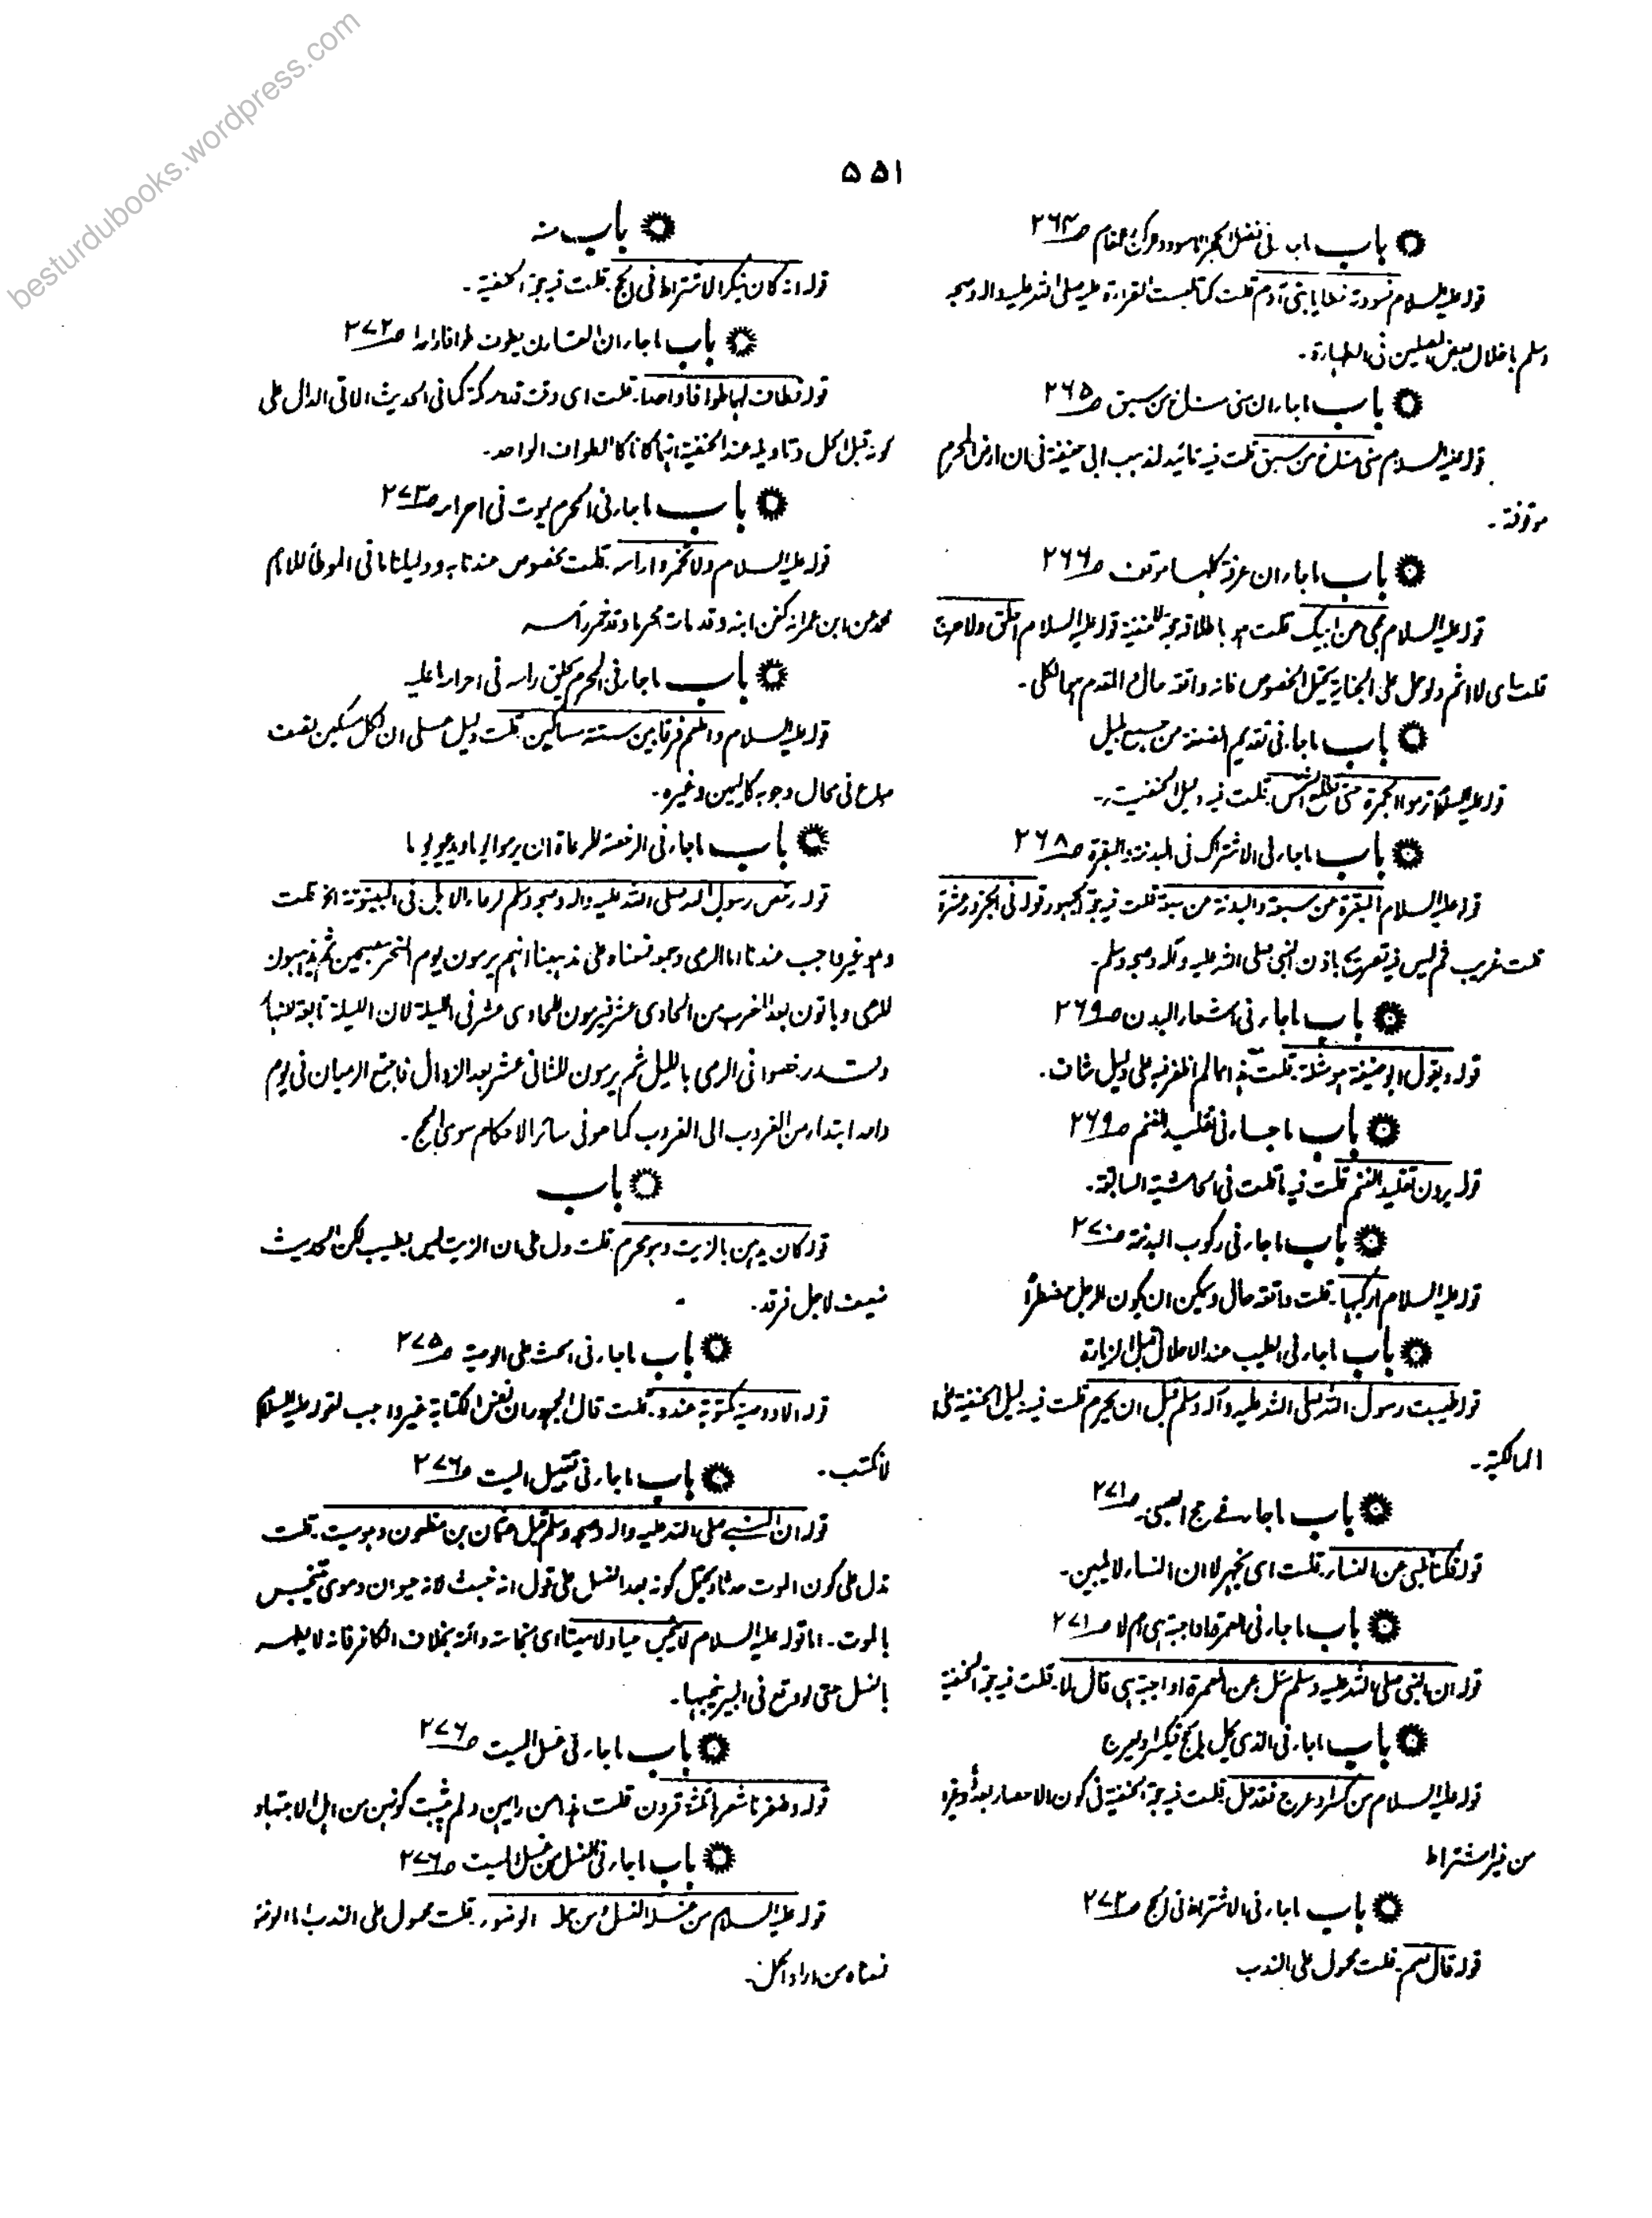 besturdubooks.wordpress.com
۵۵۱
باب فی فضل الحجر الاسود والرکن والمقام ص۲۶۴
قولہ علیہ السلام فسودتہ خطایا بنی آدم قلت کما تلبست القراءۃ علیہ صلی اللہ علیہ والہ وصحبہ
وسلم باخلال بعض المصلین فی الطہارۃ۔
باب ماجاء ان منی مناخ من سبق ص۲۶۵
قولہ علیہ السلام منی مناخ من سبق قلت فیہ تائید لمذہب ابی حنیفۃ فی ان ارض الحرم
موقوفۃ۔
باب ماجاء ان عرفۃ کلہا موقف ص۲۶۶
قولہ علیہ السلام حجی عن ابیک قلت ہو باطلاقہ حجۃ للحنفیۃ قولہ علیہ السلام احلق ولا حرج
قلت ای لا اثم ولو حمل علی الجنایۃ یحتمل الخصوص فانہ واقعۃ حال
باب ماجاء فی تقدیم الضعفۃ من جمع بلیل
قولہ علیہ السلام لا ترموا الجمرۃ حتی تطلع الشمس قلت فیہ دلیل الحنفیۃ۔
باب ماجاء فی الاشتراک فی البدنۃ والبقرۃ ص۲۶۸
قولہ علیہ السلام البقرۃ عن سبعۃ والبدنۃ عن سبعۃ قلت فیہ حجۃ الجمہور قولہ فی الجزور عشرۃ
قلت غریب ثم لیس فیہ تصریح باذن النبی صلی اللہ علیہ وآلہ وصحبہ وسلم۔
باب ماجاء فی اشعار البدن ص۲۶۹
قولہ ویقول ابو حنیفۃ ہو مثلۃ۔ قلت ہذا مما لم اظفر فیہ علی دلیل شاف۔
باب ماجاء فی تقلید الغنم ص۲۶۹
قولہ یرون تقلید الغنم قلت فیہ ماقلت فی الحاشیۃ السابقۃ۔
باب ماجاء فی رکوب البدنۃ ص۲۷۰
قولہ علیہ السلام ارکبہا۔ قلت واقعۃ حال ویمکن ان یکون الرجل مضطراً
باب ماجاء فی الطیب عند الاحلال قبل الزیارۃ
قولہ طیبت رسول اللہ صلی اللہ علیہ وآلہ وسلم قبل ان یحرم قلت فیہ دلیل الحنفیۃ علی
المالکیۃ۔
باب ماجاء فی حج الصبی ص۲۷۱
قولہ فکنا نلبی عن النساء۔ قلت ای نجہر لا ان النساء لا یلبین۔
باب ماجاء فی العمرۃ اواجبۃ ہی ام لا ص۲۷۱
قولہ ان النبی صلی اللہ علیہ وسلم سئل عن العمرۃ اواجبۃ ہی قال لا۔ قلت فیہ حجۃ الحنفیۃ
باب ماجاء فی الذی یہل بالحج فیکسر او یعرج
قولہ علیہ السلام من کسر او عرج فقد حل قلت فیہ حجۃ الحنفیۃ فی کون الاحصار بعدو وغیرہ
من غیر اشتراط
باب ماجاء فی الاشتراط فی الحج ص۲۷۲
قولہ قال نعم۔ قلت محمول علی الندب
باب منہ
قولہ انہ کان ینکر الاشتراط فی الحج۔ قلت فیہ حجۃ الحنفیۃ۔
باب ماجاء ان القارن یطوف طوافا واحدا ص۲۷۲
قولہ فطاف لہما طوافا واحدا۔ قلت ای وقت قدوم مکۃ کما فی الحدیث الآتی الدال علی
کونہ قبل الحل وتاویلہ عند الحنفیۃ انہما کانا کالطواف الواحد۔
باب ماجاء فی المحرم یموت فی احرامہ ص۲۷۳
قولہ علیہ السلام ولا تخمروا راسہ۔ قلت مخصوص عندنا بہ ودلیلنا ما فی الموطأ للامام
محمد عن ابن عمر انہ کفن ابنہ وقد مات محرما وقد خمر رأسہ
باب ماجاء فی المحرم یحلق راسہ فی احرامہ ما علیہ
قولہ علیہ السلام واطعم فرقا بین ستۃ مساکین۔ قلت دلیل علی ان لکل مسکین نصف
صاع فی محال وجوبہ کالیمین وغیرہ۔
باب ماجاء فی الرخصۃ للرعاۃ ان یرموا یوما ویدعوا یوما
قولہ رخص رسول اللہ صلی اللہ علیہ والہ وصحبہ وسلم لرعاء الابل فی البیتوتۃ الخ قلت
وہو غیر واجب عندنا اما الرمی وجمعہ فمعناہ علی مذہبنا انہم یرمون یوم النحر مصبحین ثم یذہبون
للرعی ویاتون بعد المغرب من الحادی عشر فیرمون للحادی عشر فی اللیلۃ لان اللیلۃ تابعۃ للنہار
وقد رخصوا فی الرمی باللیل ثم یرمون للثانی عشر بعد الزوال فاجتمع الرمیان فی یوم
واحد ابتداءہ من الغروب الی الغروب کما ہو فی سائر الاحکام سوی الحج۔
باب
قولہ کان یدہن بالزیت وہو محرم۔ قلت دل علی ان الزیت لیس بطیب لکن الحدیث
ضعیف لاجل فرقد۔
باب ماجاء فی الحث علی الوصیۃ ص۲۷۵
قولہ الا ووصیتہ مکتوبۃ عندہ۔ قلت قال الجمہور ان نفس الکتابۃ غیر واجب لقولہ علیہ السلام
لا نکتب۔
باب ماجاء فی تقبیل المیت ص۲۷۶
قولہ ان النبی صلی اللہ علیہ والہ وصحبہ وسلم قبل عثمان بن مظعون وہو میت۔ قلت
تدل علی کون الموت حدثا ویحتمل کونہ بعد الغسل علی قول انہ خبث لانہ حیوان دموی فیتنجس
بالموت۔ اما قولہ علیہ السلام لا ینجس حیا ولا میتا ای نجاسۃ دائمۃ بخلاف الکافر فانہ لا یطہر
بالغسل حتی لو وقع فی البیر ینجسہا۔
باب ماجاء فی غسل المیت ص۲۷۶
قولہ وضفرنا شعرہا ثلثۃ قرون قلت ہذا من رایہن ولم یثبت کونہن من اہل الاجتہاد
باب ماجاء فی الغسل من غسل المیت ص۲۷۶
قولہ علیہ السلام من غسلہ الغسل ومن حملہ الوضوء۔ قلت محمول علی الندب اما الوضوء
فمعناہ من اراد الحمل۔